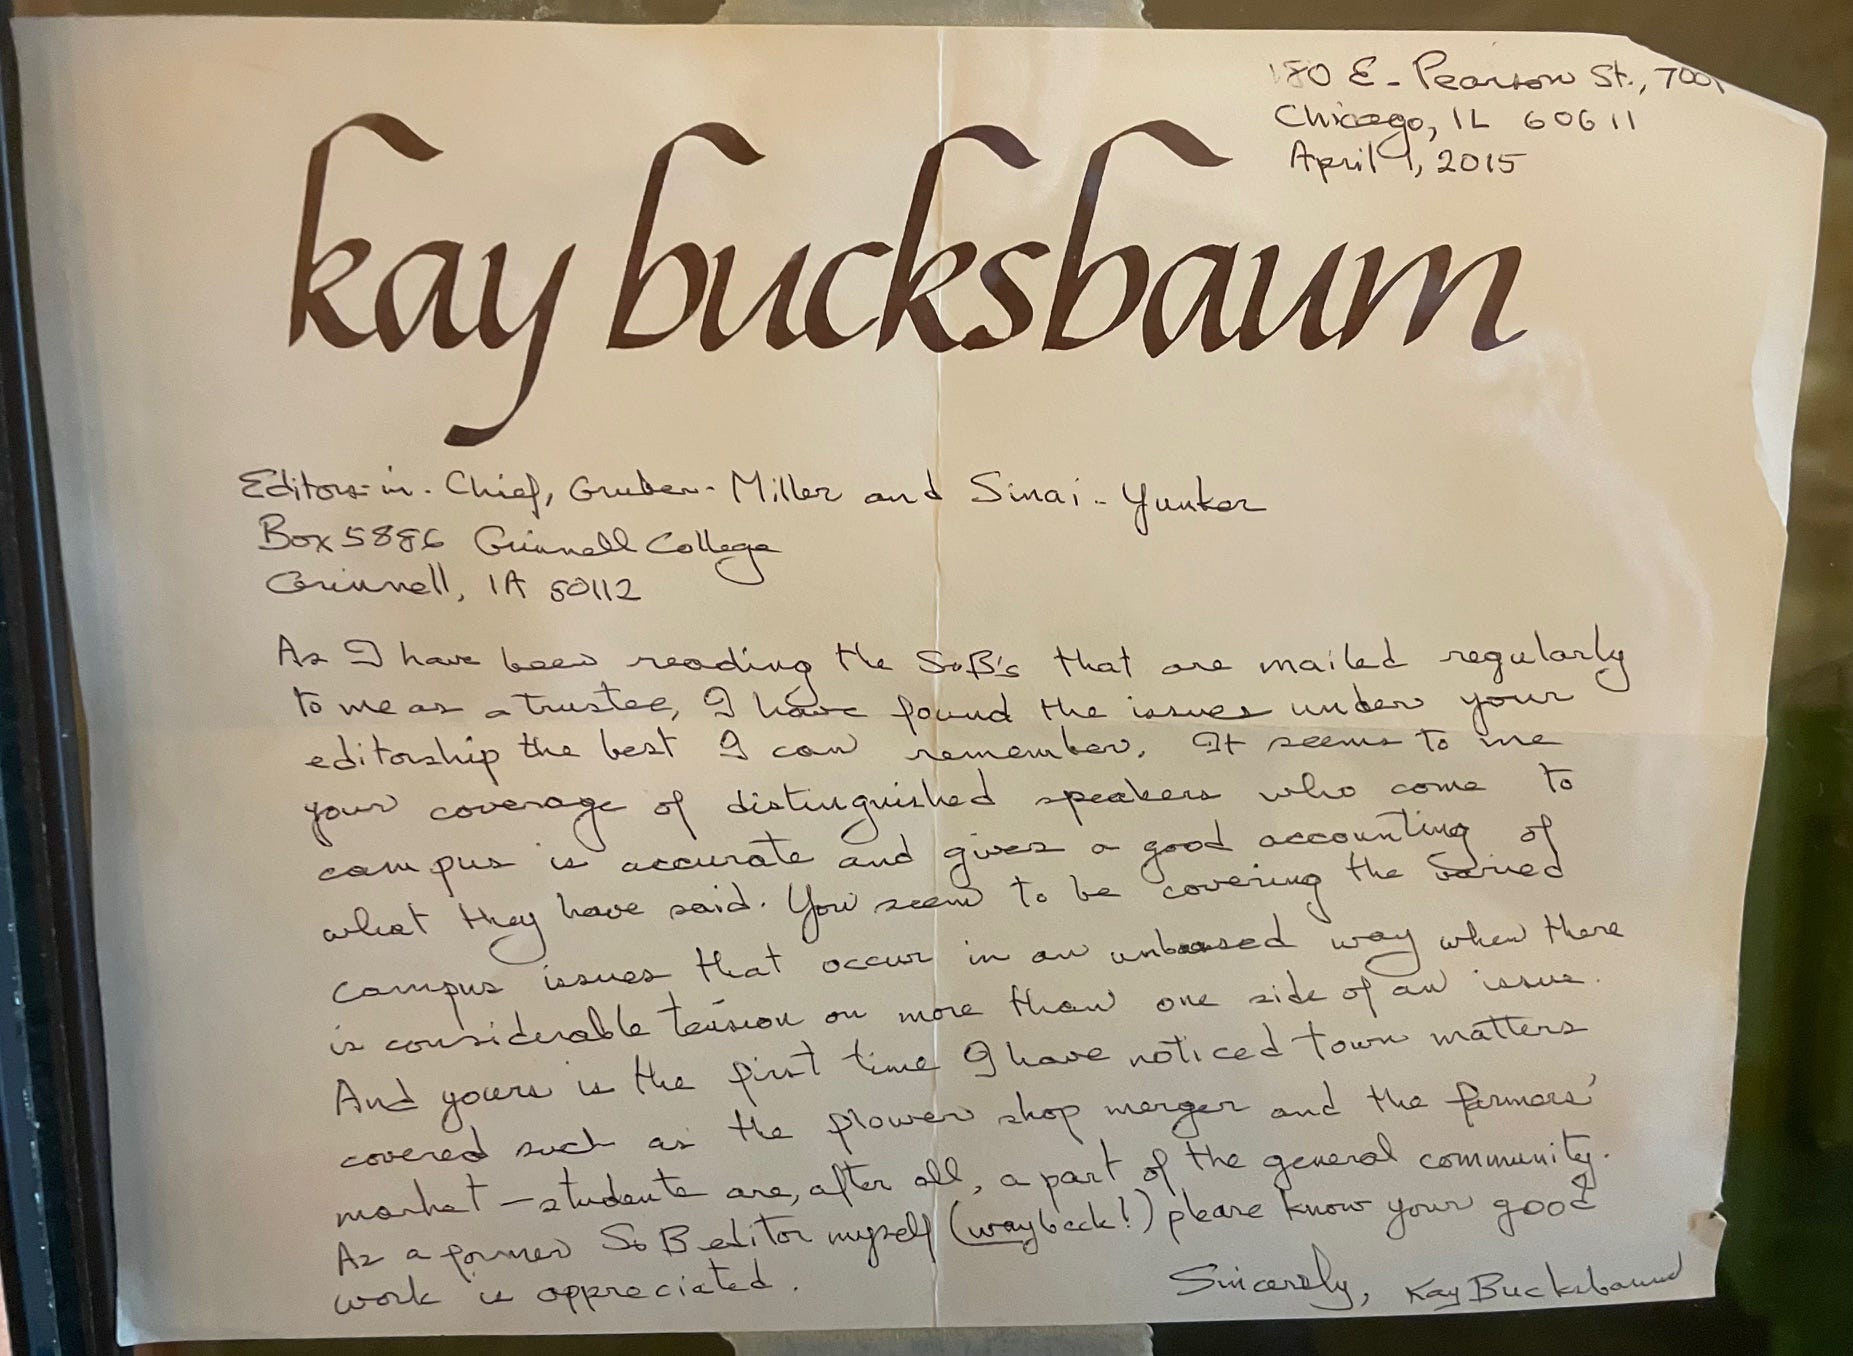 180 E. Pearson St., 7001
Chicago, IL 60611
April 1, 2015
kay bucksbaum
Editors-in-Chief, Gruber-Miller and Sinai-Yunker
Box 5886 Grinnell College
Grinnell, IA 50112
As I have been reading the S&B's that are mailed regularly
to me as a trustee, I have found the issues under your
editorship the best I can remember. It seems to me
your coverage of distinguished speakers who come to
campus is accurate and gives a good accounting of
what they have said. You seem to be covering the varied
campus issues that occur in an unbiased way when there
is considerable tension on more than one side of an issue.
And yours is the first time I have noticed town matters
covered such as the flower shop merger and the farmers'
market – students are, after all, a part of the general community.
As a former S&B editor myself (wayback!) please know your good
work is appreciated.
Sincerely, Kay Bucksbaum